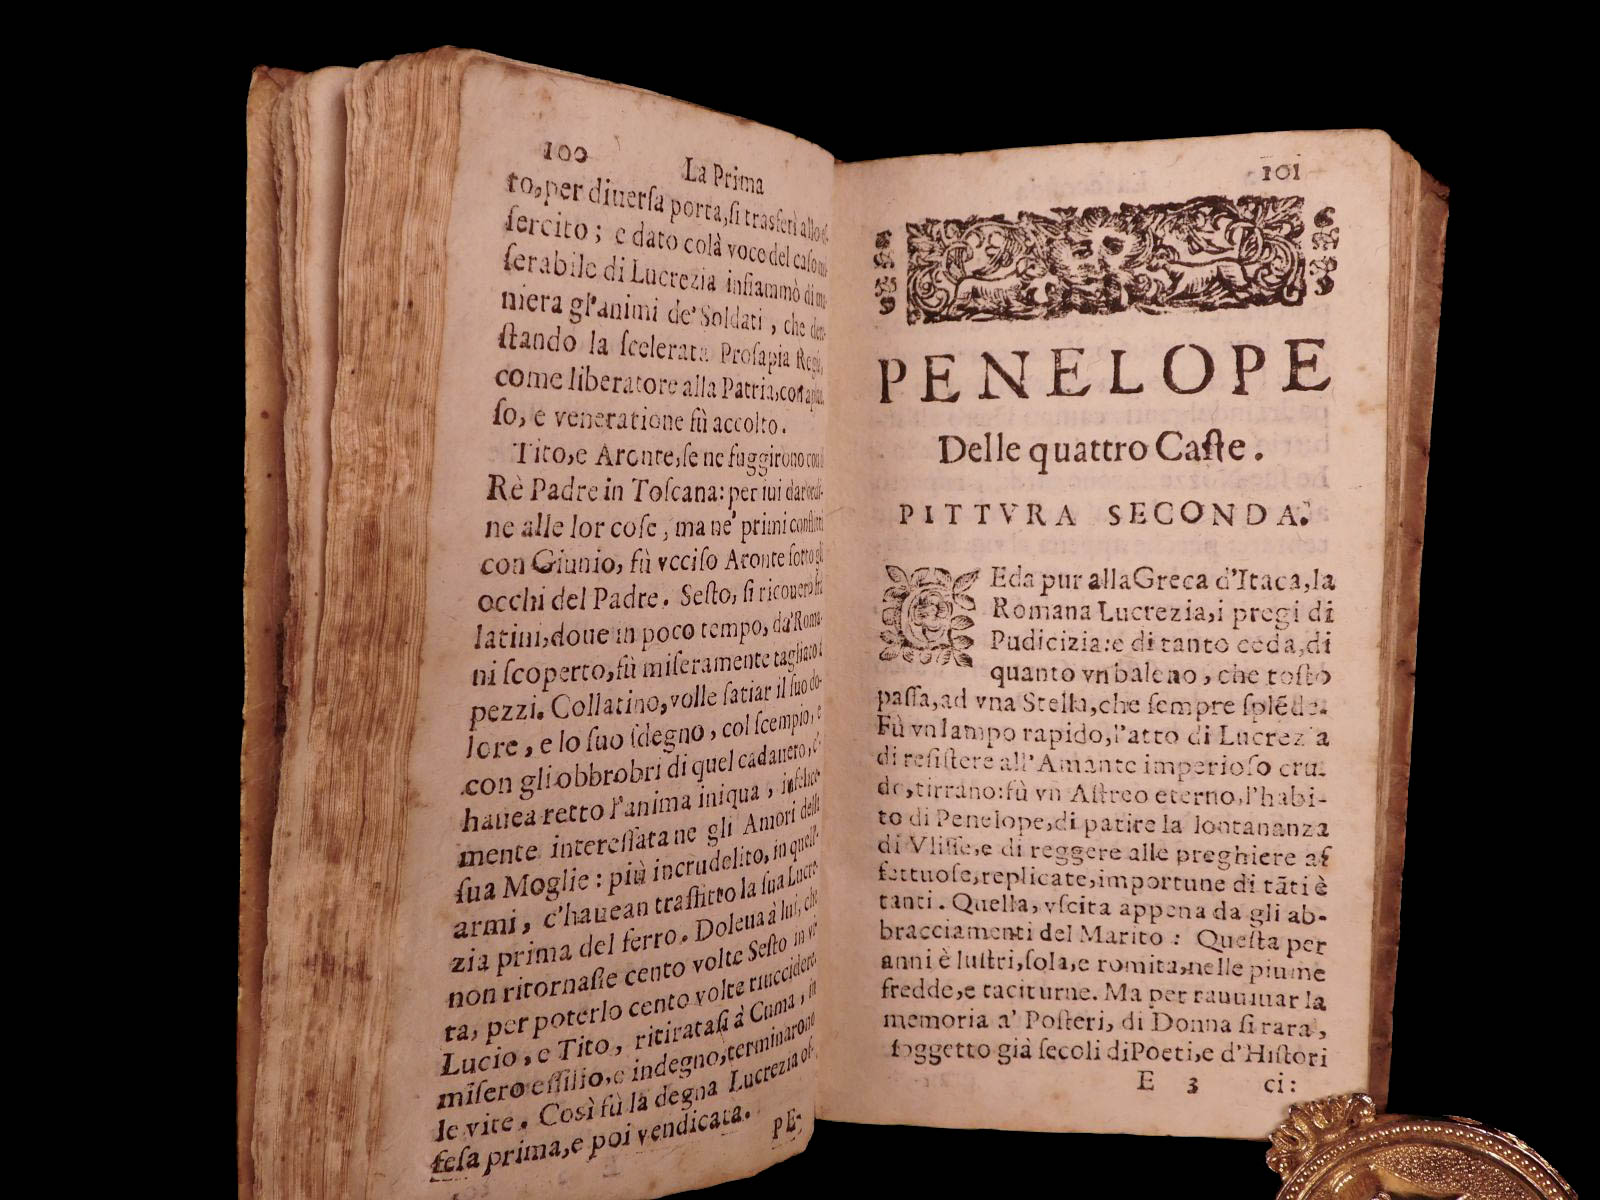 100 La Prima
to, per diuerſa porta, ſi trasferì allo eſ-
ſercito; e dato colà voce del caſo mi-
ſerabile di Lucrezia infiammò di ma-
niera gl'animi de' Soldati, che dete-
ſtando la ſcelerata Proſapia Regia,
come liberatore alla Patria, con applau-
ſo, e veneratione fù accolto.
Tito, e Aronte, ſe ne fuggirono con il
Rè Padre in Toſcana: per iui dar ordi-
ne alle lor coſe, ma ne' primi conflitti
con Giunio, fù vcciſo Aronte ſotto gli
occhi del Padre. Seſto, ſi ricouerò frà
latini, doue in poco tempo, da' Roma-
ni ſcoperto, fù miſeramente tagliato à
pezzi. Collatino, volle ſatiar il ſuo do-
lore, e lo ſuo ſdegno, col ſcempio, e
con gli obbrobri di quel cadauero, c'-
hauea retto l'anima iniqua, infelice-
mente intereſſata ne gli Amori della
ſua Moglie: più incrudelito, in quell'-
armi, c'hauean traffitto la ſua Lucre-
zia prima del ferro. Doleua à lui, che
non ritornaſſe cento volte Seſto in vi-
ta, per poterlo cento volte riuccidere.
Lucio, e Tito, ritirataſi à Cuma, in
miſero eſſilio, e indegno, terminarono
le vite. Così fù la degna Lucrezia of-
feſa prima, e poi vendicata.
PE-
101
PENELOPE
Delle quattro Caſte.
PITTVRA SECONDA.
Eda pur alla Greca d'Itaca, la
Romana Lucrezia, i pregi di
Pudicizia: e di tanto ceda, di
quanto vn baleno, che toſto
paſſa, ad vna Stella, che ſempre ſplẽde.
Fù vn lampo rapido, l'atto di Lucrezia
di reſiſtere all'Amante imperioſo cru-
do, tirrano: fù vn Aſtreo eterno, l'habi-
to di Penelope, di patire la lontananza
di Vliſſe, e di reggere alle preghiere af
fettuoſe, replicate, importune di tãti è
tanti. Quella, vſcita appena da gli ab-
bracciamenti del Marito: Queſta per
anni è luſtri, ſola, e romita, nelle piume
fredde, e taciturne. Ma per rauuiuar la
memoria a' Poſteri, di Donna ſi rara,
ſoggetto già ſecoli di Poeti, e d'Hiſtori
E 3 ci: